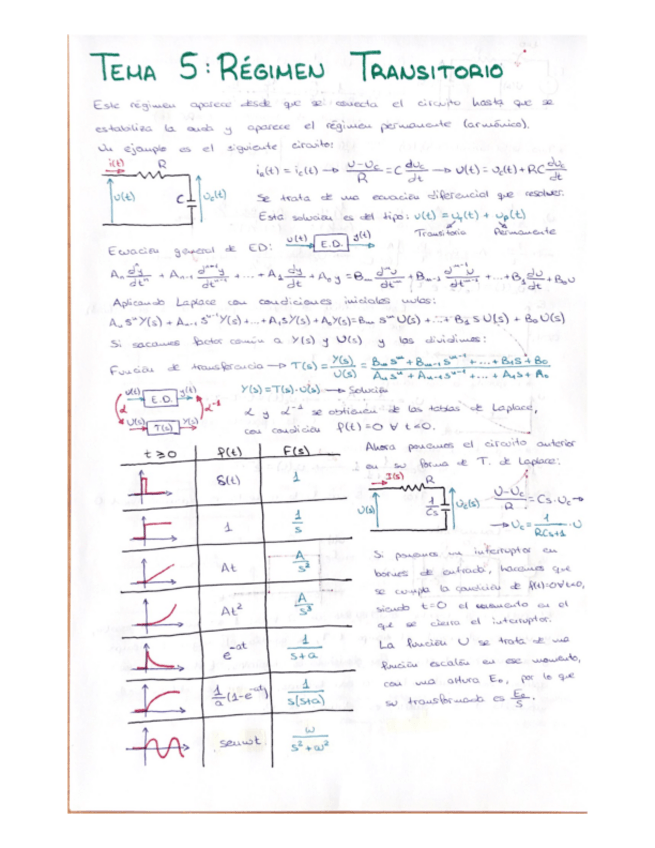 TEMA 5: RÉGIMEN TRANSITORIO
Este régimen aparece desde que se conecta el circuito hasta que se
estabiliza la onda y aparece el régimen permanente (armónico).
Un ejemplo es el siguiente circuito:
i(t) R
u(t) C u_c(t)
i_R(t) = i_C(t) → (U-U_C)/R = C du_c/dt → u(t) = u_c(t) + RC du_c/dt
Se trata de una ecuación diferencial que resolver.
Esta solución es del tipo: u(t) = u_t(t) + u_p(t)
Transitoria Permanente
Ecuación general de ED: u(t) E.D. y(t)
A_n d^n y/dt^n + A_{n-1} d^{n-1} y/dt^{n-1} + ... + A_1 dy/dt + A_0 y = B_m d^m u/dt^m + B_{m-1} d^{m-1} u/dt^{m-1} + ... + B_1 du/dt + B_0 u
Aplicando Laplace con condiciones iniciales nulas:
A_n s^n Y(s) + A_{n-1} s^{n-1} Y(s) + ... + A_1 s Y(s) + A_0 Y(s) = B_m s^m U(s) + ... + B_1 s U(s) + B_0 U(s)
Si sacamos factor común a Y(s) y U(s) y los dividimos:
Función de transferencia → T(s) = Y(s)/U(s) = (B_m s^m + B_{m-1} s^{m-1} + ... + B_1 s + B_0)/(A_n s^n + A_{n-1} s^{n-1} + ... + A_1 s + A_0)
u(t) E.D. y(t)
α α^-1
U(s) T(s) Y(s)
Y(s) = T(s)·U(s) → Solución
α y α^-1 se obtienen de las tablas de Laplace,
con condición f(t) = 0 ∀ t < 0.
t ≥ 0 f(t) F(s)
δ(t) 1
1 1/s
At A/s^2
At^2 A/s^3
e^-at 1/(s+a)
1/a (1-e^-at) 1/(s(s+a))
sen wt ω/(s^2+ω^2)
Ahora ponemos el circuito anterior
en su forma de T. de Laplace:
I(s) R
U(s) 1/Cs U_c(s)
(U-U_C)/R = Cs·U_C →
→ U_C = 1/(RCs+1) · U
Si ponemos un interruptor en
bornes de entrada, hacemos que
se cumpla la condición de f(t)=0 ∀ t<0,
siendo t=0 el momento en el
que se cierra el interruptor.
La función U se trata de una
función escalón en ese momento,
con una altura E_0, por lo que
su transformada es E_0/s.